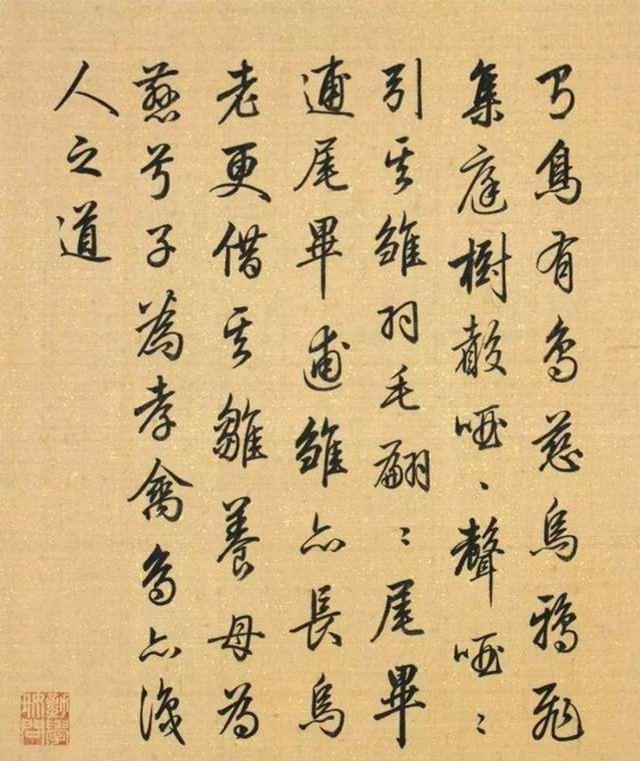 有鳥有鳥慈烏鴉飛
集庭樹啞〻聲啞〻
引其雛羽毛翩〻尾畢
逋尾畢逋雛亦長烏
老更借其雛養母為
慈兮子為孝禽鳥亦識
人之道